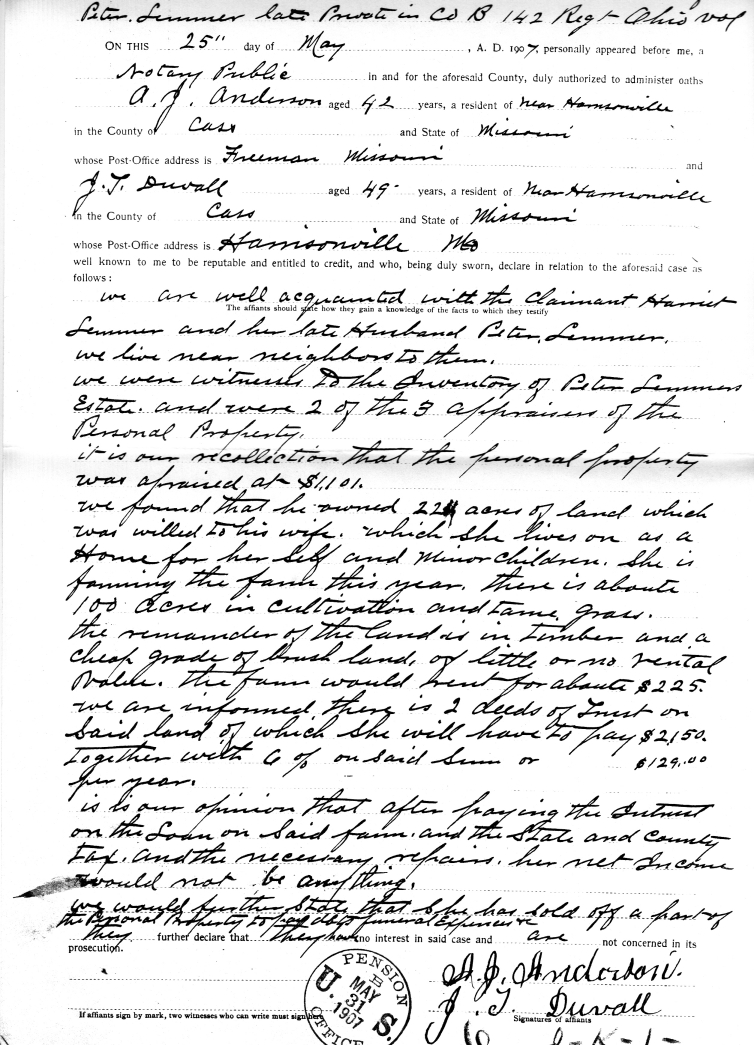 Peter. Lemmer late Private in Co B 142 Regt Ohio vol
ON THIS 25" day of May , A. D. 1907, personally appeared before me, a
Notary Public in and for the aforesaid County, duly authorized to administer oaths
A. J. Anderson aged 42 years, a resident of near Harrisonville
in the County of Cass and State of Missouri
whose Post-Office address is Freeman Missouri and
J. T. Duvall aged 49- years, a resident of Near Harrisonville
in the County of Cass and State of Missouri
whose Post-Office address is Harrisonville Mo
well known to me to be reputable and entitled to credit, and who, being duly sworn, declare in relation to the aforesaid case as
follows:
we are well acquainted with the Claimant Harriet
The affiants should state how they gain a knowledge of the facts to which they testify
Lemmer and her late Husband Peter. Lemmer.
we live near neighbors to them.
we were witnesses to the Inventory of Peter Lemmers
Estate. and were 2 of the 3 appraisers of the
Personal Property.
it is our recollection that the personal property
was apraised at $1,101.
we found that he owned acres of land which
was willed to his wife. which she lives on as a
Home for her self and minor children. She is
farming the farm this year. there is aboute
100 acres in cultivation and tame grass.
the remainder of the land is in timber and a
cheap grade of brush land, of little or no rental
value. the farm would rent for aboute $225.
we are informed there is 2 deeds of Trust on
said land of which she will have to pay $2,150.
together with 6 % on said sum or $129.00
per year.
is is our opinion that after paying the Intrust
on the Loan on said farm. and the State and County
Tax. and the necessary repairs. her net Income
would not be anything.
we would further State that She has sold off a part of
the Personal Property to pay debts funeral Expensive
they further declare that they have no interest in said case and are not concerned in its
prosecution.
A. J. Anderson.
J. T. Duvall
If affiants sign by mark, two witnesses who can write must sign here
Signatures of affiants
PENSION
B
MAY
31
1907
U. S.
OFFICE